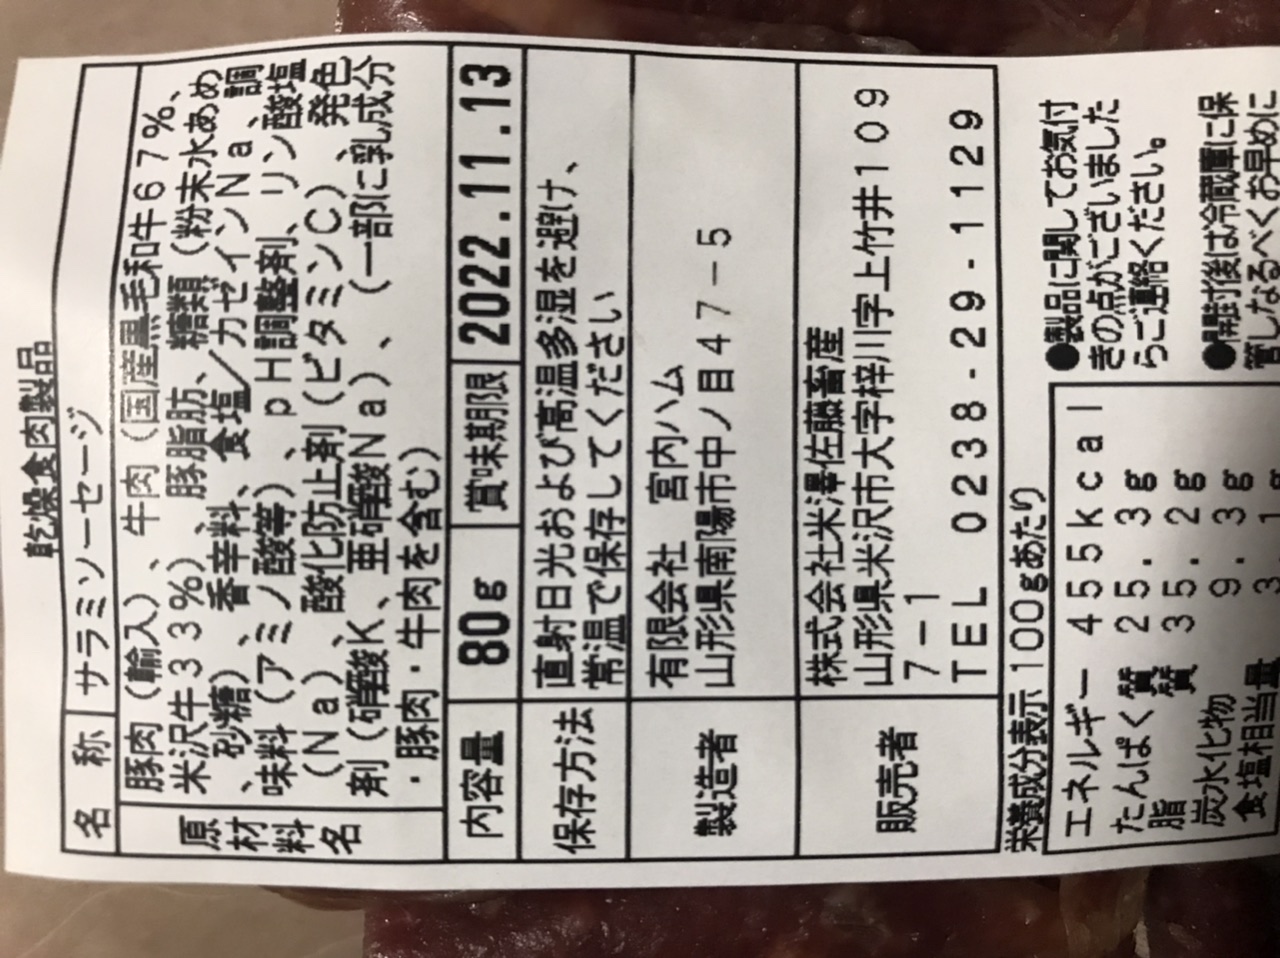 乾燥食肉製品
名称 サラミソーセージ
原材料名
豚肉（輸入）、牛肉（国産黒毛和牛67%、
米沢牛33%）、豚脂肪、糖類（粉末水あめ
、砂糖）、香辛料、食塩／カゼインNa、調
味料（アミノ酸等）、pH調整剤、リン酸塩
（Na）、酸化防止剤（ビタミンC）、発色
剤（硝酸K、亜硝酸Na）、（一部に乳成分
・豚肉・牛肉を含む）
内容量 80g 賞味期限 2022.11.13
保存方法
直射日光および高温多湿を避け、
常温で保存してください
製造者
有限会社 宮内ハム
山形県南陽市中ノ目47-5
販売者
株式会社米澤佐藤畜産
山形県米沢市大字梓川字上竹井109
7-1
TEL 0238-29-1129
栄養成分表示 100gあたり
エネルギー 455kcal
たんぱく質 25.3g
脂質 35.2g
炭水化物 9.3g
食塩相当量 3.1g
●製品に関してお気付
きの点がございました
らご連絡ください。
●開封後は冷蔵庫に保
管しなるべくお早めに